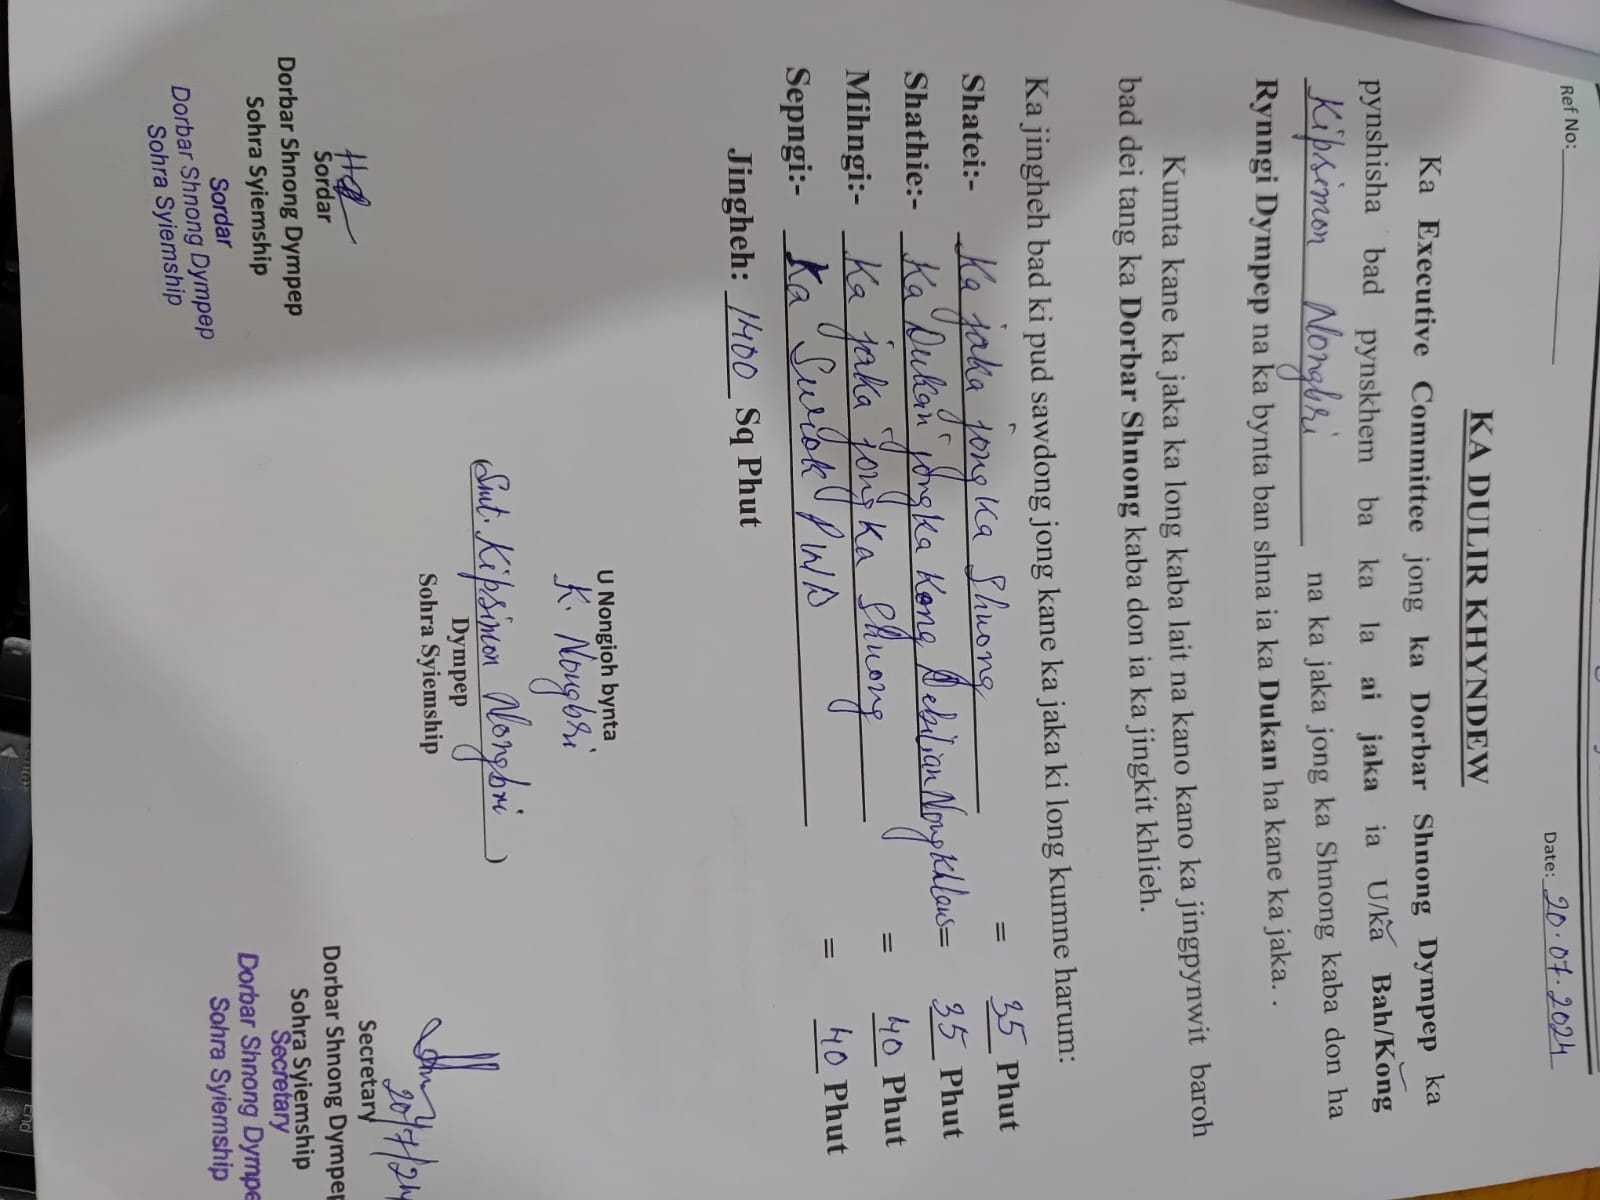 Ref No:
Date: 20.07.2024
KA DULIR KHYNDEW
Ka Executive Committee jong ka Dorbar Shnong Dympep ka
pynshisha bad pynskhem ba ka la ai jaka ia U/ka Bah/Kong
Kipsimon Nongbri na ka jaka jong ka Shnong kaba don ha
Rynngi Dympep na ka bynta ban shna ia ka Dukan ha kane ka jaka. .
Kumta kane ka jaka ka long kaba lait na kano kano ka jingpynwit baroh
bad dei tang ka Dorbar Shnong kaba don ia ka jingkit khlieh.
Ka jingheh bad ki pud sawdong jong kane ka jaka ki long kumne harum:
Shatei:- Ka jaka jong ka Shnong = 35 Phut
Shathie:- Ka Dukan jong ka Kong Debilian Nongkhlaw = 35 Phut
Mihngi:- Ka jaka jong ka Shnong = 40 Phut
Sepngi:- Ka Surok PWD = 40 Phut
Jingheh: 1400 Sq Phut
U Nongioh bynta
K. Nongbri
(Smt. Kipsimon Nongbri)
Dympep
Sohra Syiemship
Sordar
Dorbar Shnong Dympep
Sohra Syiemship
Sordar
Dorbar Shnong Dympep
Sohra Syiemship
20/7/24
Secretary
Dorbar Shnong Dympep
Sohra Syiemship
Secretary
Dorbar Shnong Dympe
Sohra Syiemship